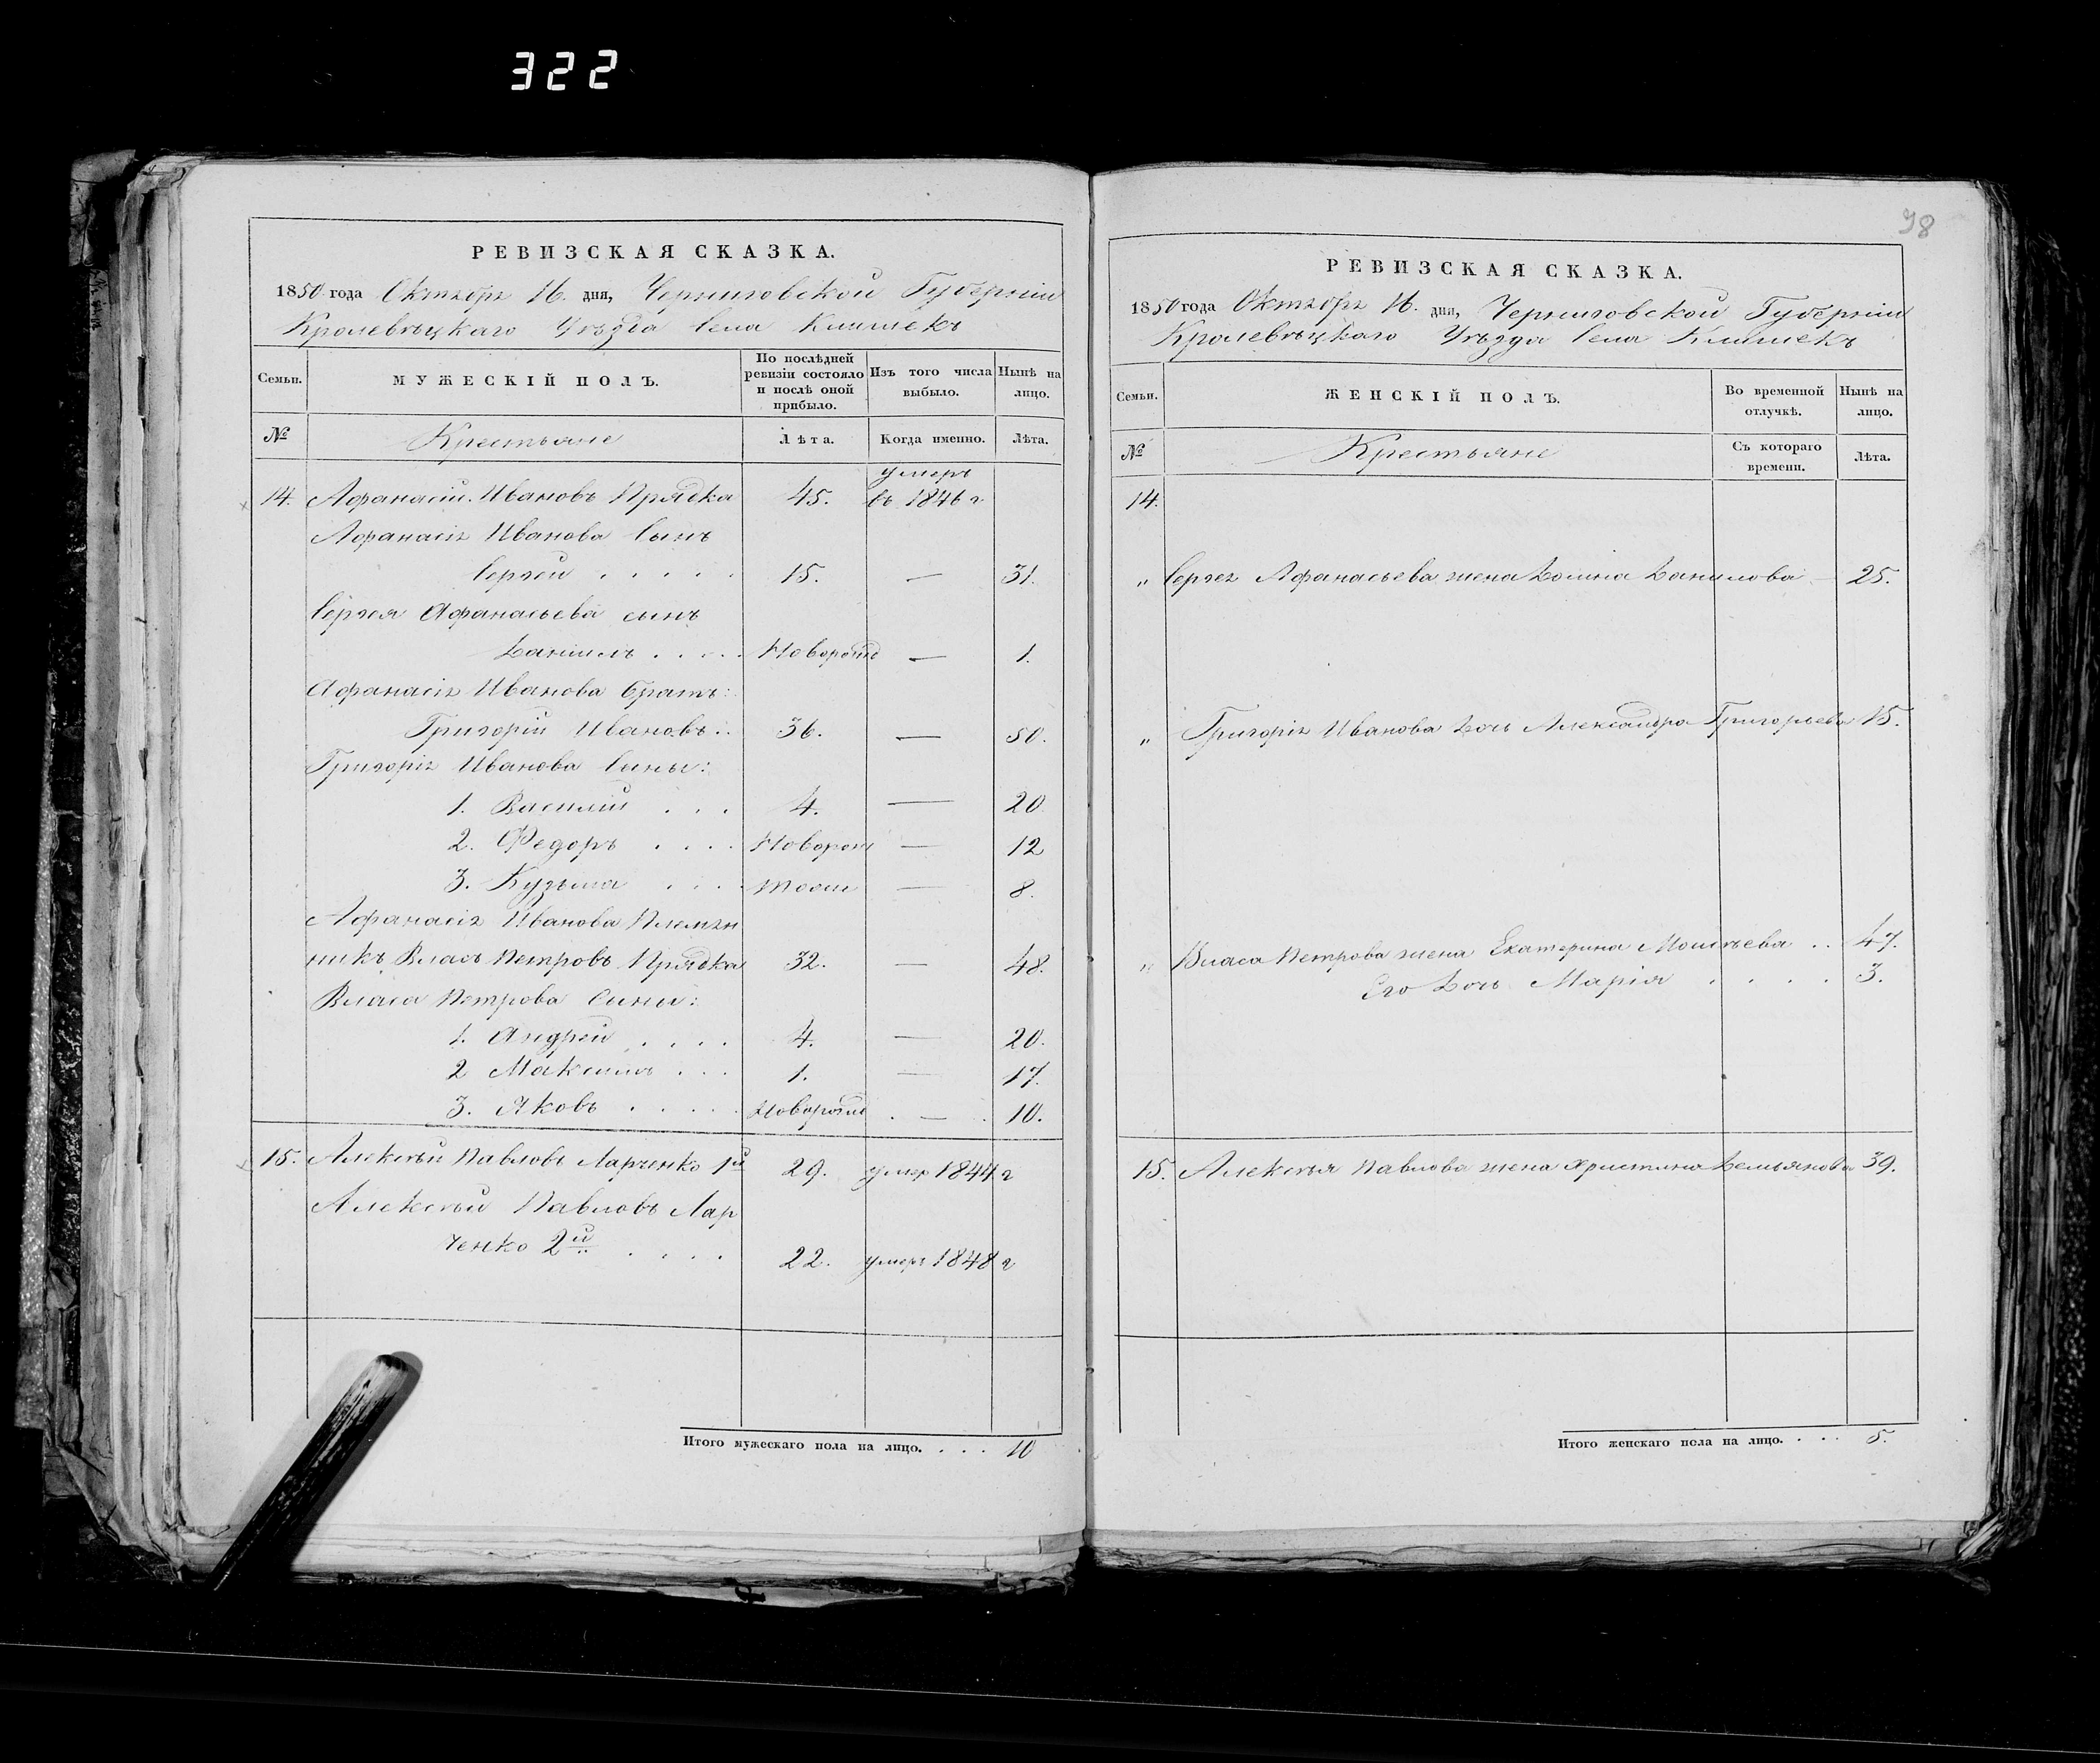 322
98
РЕВИЗСКАЯ СКАЗКА.
1850 года Октября 16. дня, Черниговской Губерніи
Кролевецкаго Уѣзда Села Клишекъ
Семьи.
МУЖЕСКІЙ ПОЛЪ.
По послѣдней ревизіи состояло и послѣ оной прибыло.
Изъ того числа выбыло.
Нынѣ на лицо.
№ Крестьяне Лѣта. Когда именно. Лѣта.
умеръ
14. Афанасій Ивановъ Прядка 45. въ 1846 г
Афанасія Иванова сынъ
Сергей . . . . . 15. — 31.
Сергея Афанасьева сынъ
Даніилъ . . . . . Новорожд — 1.
Афанасія Иванова братъ:
Григорій Ивановъ . . 36. — 50.
Григорія Иванова сыны:
1. Василій . . . 4. — 20
2. Федоръ . . . . Новорож — 12
3. Кузьма . . . . тоже — 8.
Афанасія Иванова Племян
никъ Власъ Петровъ Прядка 32. — 48.
Власа Петрова сыны:
1. Андрей . . . . 4. — 20.
2 Максимъ . . . 1. — 17.
3. Яковъ . . . . . Новорожд . — . 10.
15. Алексѣй Павловъ Ларченко 1й 29. умер 1844 г
Алексѣй Павловъ Лар
ченко 2й . . . . 22. умеръ 1848 г
Итого мужескаго пола на лицо. . . . 10
РЕВИЗСКАЯ СКАЗКА.
1850 года Октября 16. дня, Черниговской Губерніи
Кролевецкаго Уѣзда Села Клишекъ
Семьи.
ЖЕНСКІЙ ПОЛЪ.
Во временной отлучкѣ.
Нынѣ на лицо.
№ Крестьяне Съ котораго времени. Лѣта.
14.
" Сергея Афанасьева жена Домна Данилова — 25.
" Григорія Иванова Дочь Александра Григорьева 15.
" Власа Петрова жена Екатерина Моисѣева . . 47.
Его Дочь Марія . . . . 3.
15. Алексѣя Павлова жена Христина Демьянова 39.
Итого женскаго пола на лицо. . . . 5.